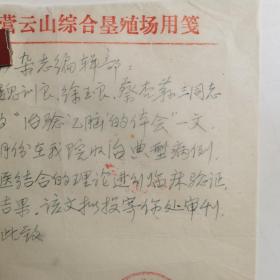 营云山综合垦殖场用笺
杂志编辑部:
训良、徐玉良、蔡杰荪三同志
的“治验乙脑的体会”一文,
月份在我院收治典型病例,
医结合的理论进行临床验证,
结果,该文拟投寄你处审刊,
此致